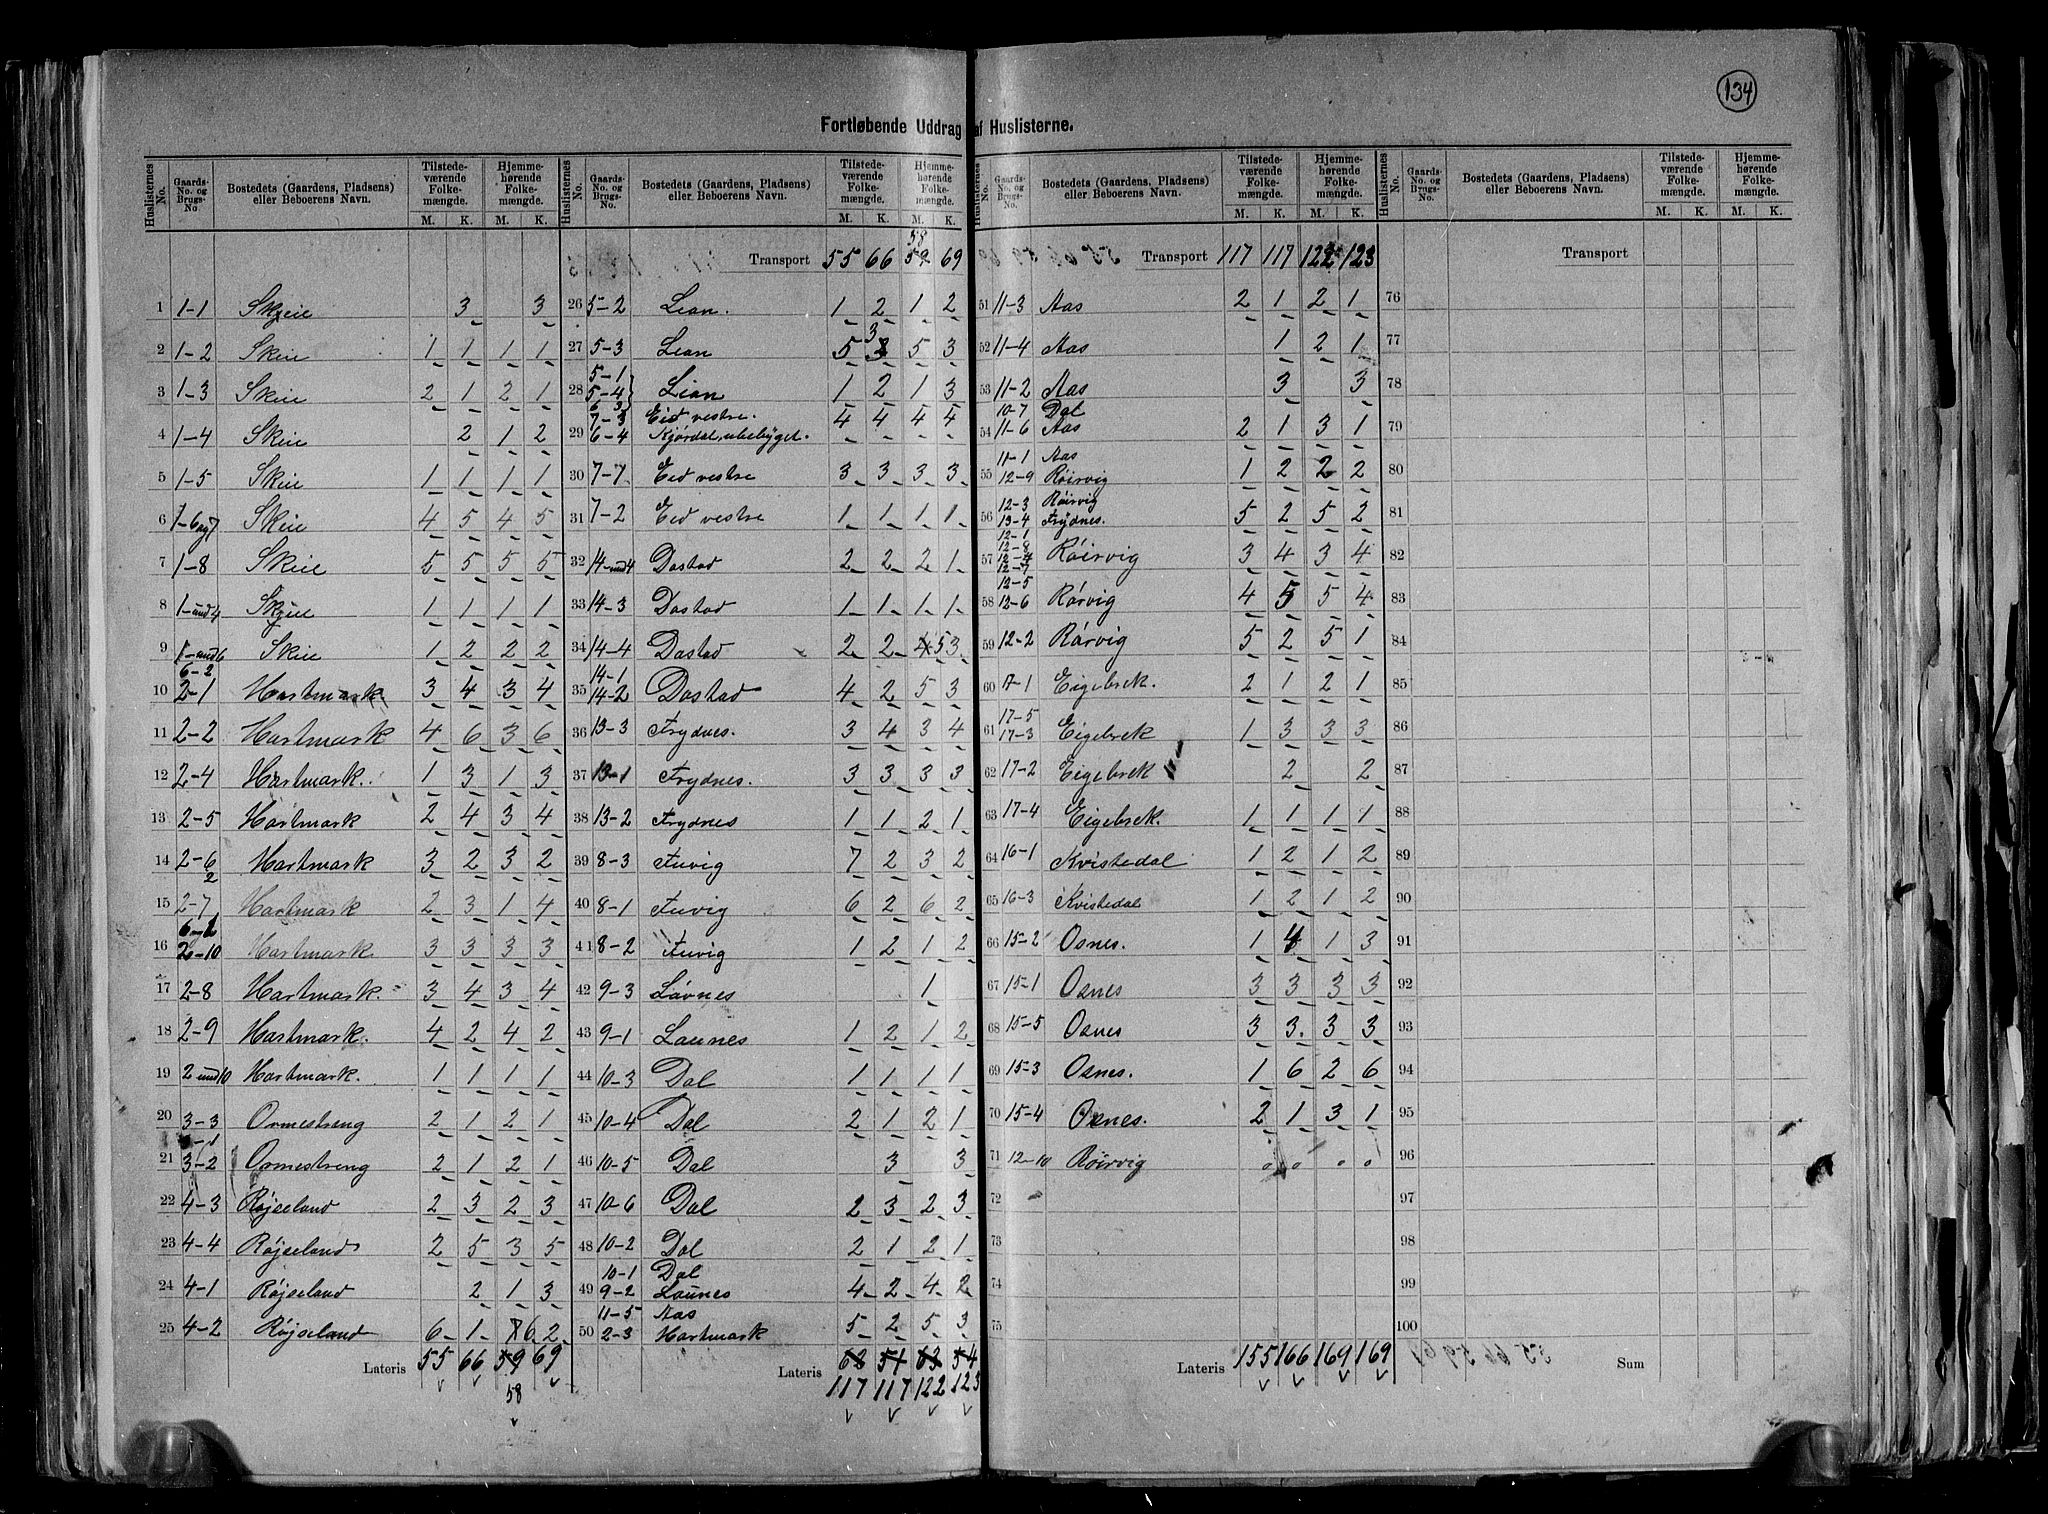 134
Fortløbende Uddrag af Huslisterne.
Huslisternes No. | Gaards-No. og Brugs-No. | Bostedets (Gaardens, Pladsens) eller Beboerens Navn. | Tilstedeværende Folkemængde. M. K. | Hjemmehørende Folkemængde. M. K.
1 1-1 Skjeie 3 3
2 1-2 Skeie 1 1 1 1
3 1-3 Skeie 2 1 2 1
4 1-4 Skeie 2 1 2
5 1-5 Skeie 1 1 1 1
6 1-6 og 7 Skeie 4 5 4 5
7 1-8 Skeie 5 5 5 5
8 1-und 4 Skjeie 1 1 1 1
9 1-und 6 Skeie 1 2 2 2
10 6-2 2-1 Hartmark. 3 4 3 4
11 2-2 Hartmark 4 6 3 6
12 2-4 Hartmark. 1 3 1 3
13 2-5 Hartmark 2 4 3 4
14 2-6 Hartmark 3 2 3 2
15 2-7 Hartmark 2 3 1 4
16 2-10 Hartmark 3 3 3 3
17 2-8 Hartmark. 3 4 3 4
18 2-9 Hartmark. 4 2 4 2
19 2 und 10 Hartmark. 1 1 1 1
20 3-3 Ormestreng 2 1 2 1
21 3-2 Ormestreng 2 1 2 1
22 4-3 Røjseland 2 3 2 3
23 4-4 Røjseland 2 5 3 5
24 4-1 Røjseland 2 1 3
25 4-2 Røjseland 6 1 6 2
Lateris 55 66 59 69
58
Huslisternes No. | Gaards-No. og Brugs-No. | Bostedets (Gaardens, Pladsens) eller Beboerens Navn. | Tilstedeværende Folkemængde. M. K. | Hjemmehørende Folkemængde. M. K.
58
Transport 55 66 59 69
26 5-2 Lian. 1 2 1 2
27 5-3 Lian 5 3 5 3
28 5-1 5-4 6-3 Lian 1 2 1 3
7-3 Eid vestre. 4 4 4 4
29 6-4 Kjørdal, ubebyget.
30 7-7. Eid vestre 3 3 3 3
31 7-2 Eid vestre 1 1 1 1
32 14-und 4 Dostad 2 2 2 1
33 14-3 Dostad 1 1 1 1
34 14-4 Dostad 2 2 4 5 3
35 14-1 14-2 Dostad 4 2 5 3
36 13-3 Frydnes. 3 4 3 4
37 13-1 Frydnes. 3 3 3 3
38 13-2 Frydnes 1 1 2 1
39 8-3 Fuvig 7 2 3 2
40 8-1 Fuvig 6 2 6 2
41 8-2 Fuvig 1 2 1 2
42 9-3 Løvnes 1
43 9-1 Launes 1 2 1 2
44 10-3 Dal 1 1 1 1
45 10-4 Dal 2 1 2 1
46 10-5 Dal 3 3
47 10-6 Dal 2 3 2 3
48 10-2 Dal 2 1 2 1
10-1 Dal
49 9-2 Launes 4 2 4 2
11-5 Aas
50 2-3 Hartmark 5 2 5 3
Lateris 62 51 63 54
117 117 122 123
Huslisternes No. | Gaards-No. og Brugs-No. | Bostedets (Gaardens, Pladsens) eller Beboerens Navn. | Tilstedeværende Folkemængde. M. K. | Hjemmehørende Folkemængde. M. K.
Transport 117 117 122 123
51 11-3 Aas 2 1 2 1
52 11-4 Aas 1 2 1
53 11-2 Aas 3 3
10-7 Dal
54 11-6 Aas 2 1 3 1
11-1 Aas
55 12-9 Røirvig 1 2 2 2
12-3 Røirvig
56 13-4 Frydnes. 5 2 5 2
57 12-1 12-8 12-4 12-7 Røirvig 3 4 3 4
58 12-5 12-6 Rørvig 4 5 5 4
59 12-2 Rørvig 5 2 5 1
60 17-1 Eigebrek. 2 1 2 1
61 17-5 17-3 Eigebrek 1 3 3 3
62 17-2 Eigebrek 2 2
63 17-4 Eigebrek. 1 1 1 1
64 16-1 Kvistedal 1 2 1 2
65 16-3 Kvistedal 1 2 1 2
66 15-2 Osnes. 1 4 1 3
67 15-1 Osnes 3 3 3 3
68 15-5 Osnes 3 3 3 3
69 15-3 Osnes. 1 6 2 6
70 15-4 Osnes. 2 1 3 1
71 12-10 Røirvig 0 0 0 0
72
73
74
75
Lateris 155 166 169 169
Huslisternes No. | Gaards-No. og Brugs-No. | Bostedets (Gaardens, Pladsens) eller Beboerens Navn. | Tilstedeværende Folkemængde. M. K. | Hjemmehørende Folkemængde. M. K.
Transport
76
77
78
79
80
81
82
83
84
85
86
87
88
89
90
91
92
93
94
95
96
97
98
99
100
Sum